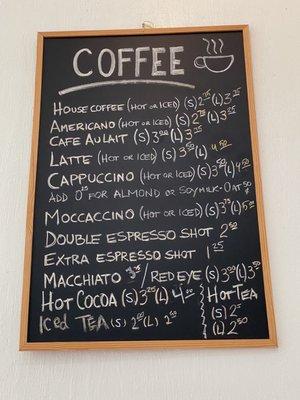 COFFEE
HOUSE COFFEE (HOT OR ICED) (S) 2.75 (L) 3.25
AMERICANO (HOT OR ICED) (S) 2.75 (L) 3.25
CAFE AU LAIT (S) 3.00 (L) 3.25
LATTE (HOT OR ICED) (S) 3.50 (L) 4.50
CAPPUCCINO (HOT OR ICED) (S) 3.50 (L) 4.50
ADD 0.75 FOR ALMOND OR SOYMILK - OAT 50¢
MOCCACCINO (HOT OR ICED) (S) 3.75 (L) 5.00
DOUBLE ESPRESSO SHOT 2.50
EXTRA ESPRESSO SHOT 1.25
MACCHIATO / RED EYE (S) 3.00 (L) 3.50
HOT COCOA (S) 3.25 (L) 4.00
HOT TEA
(S) 2.25
(L) 2.50
ICED TEA (S) 2.00 (L) 2.50